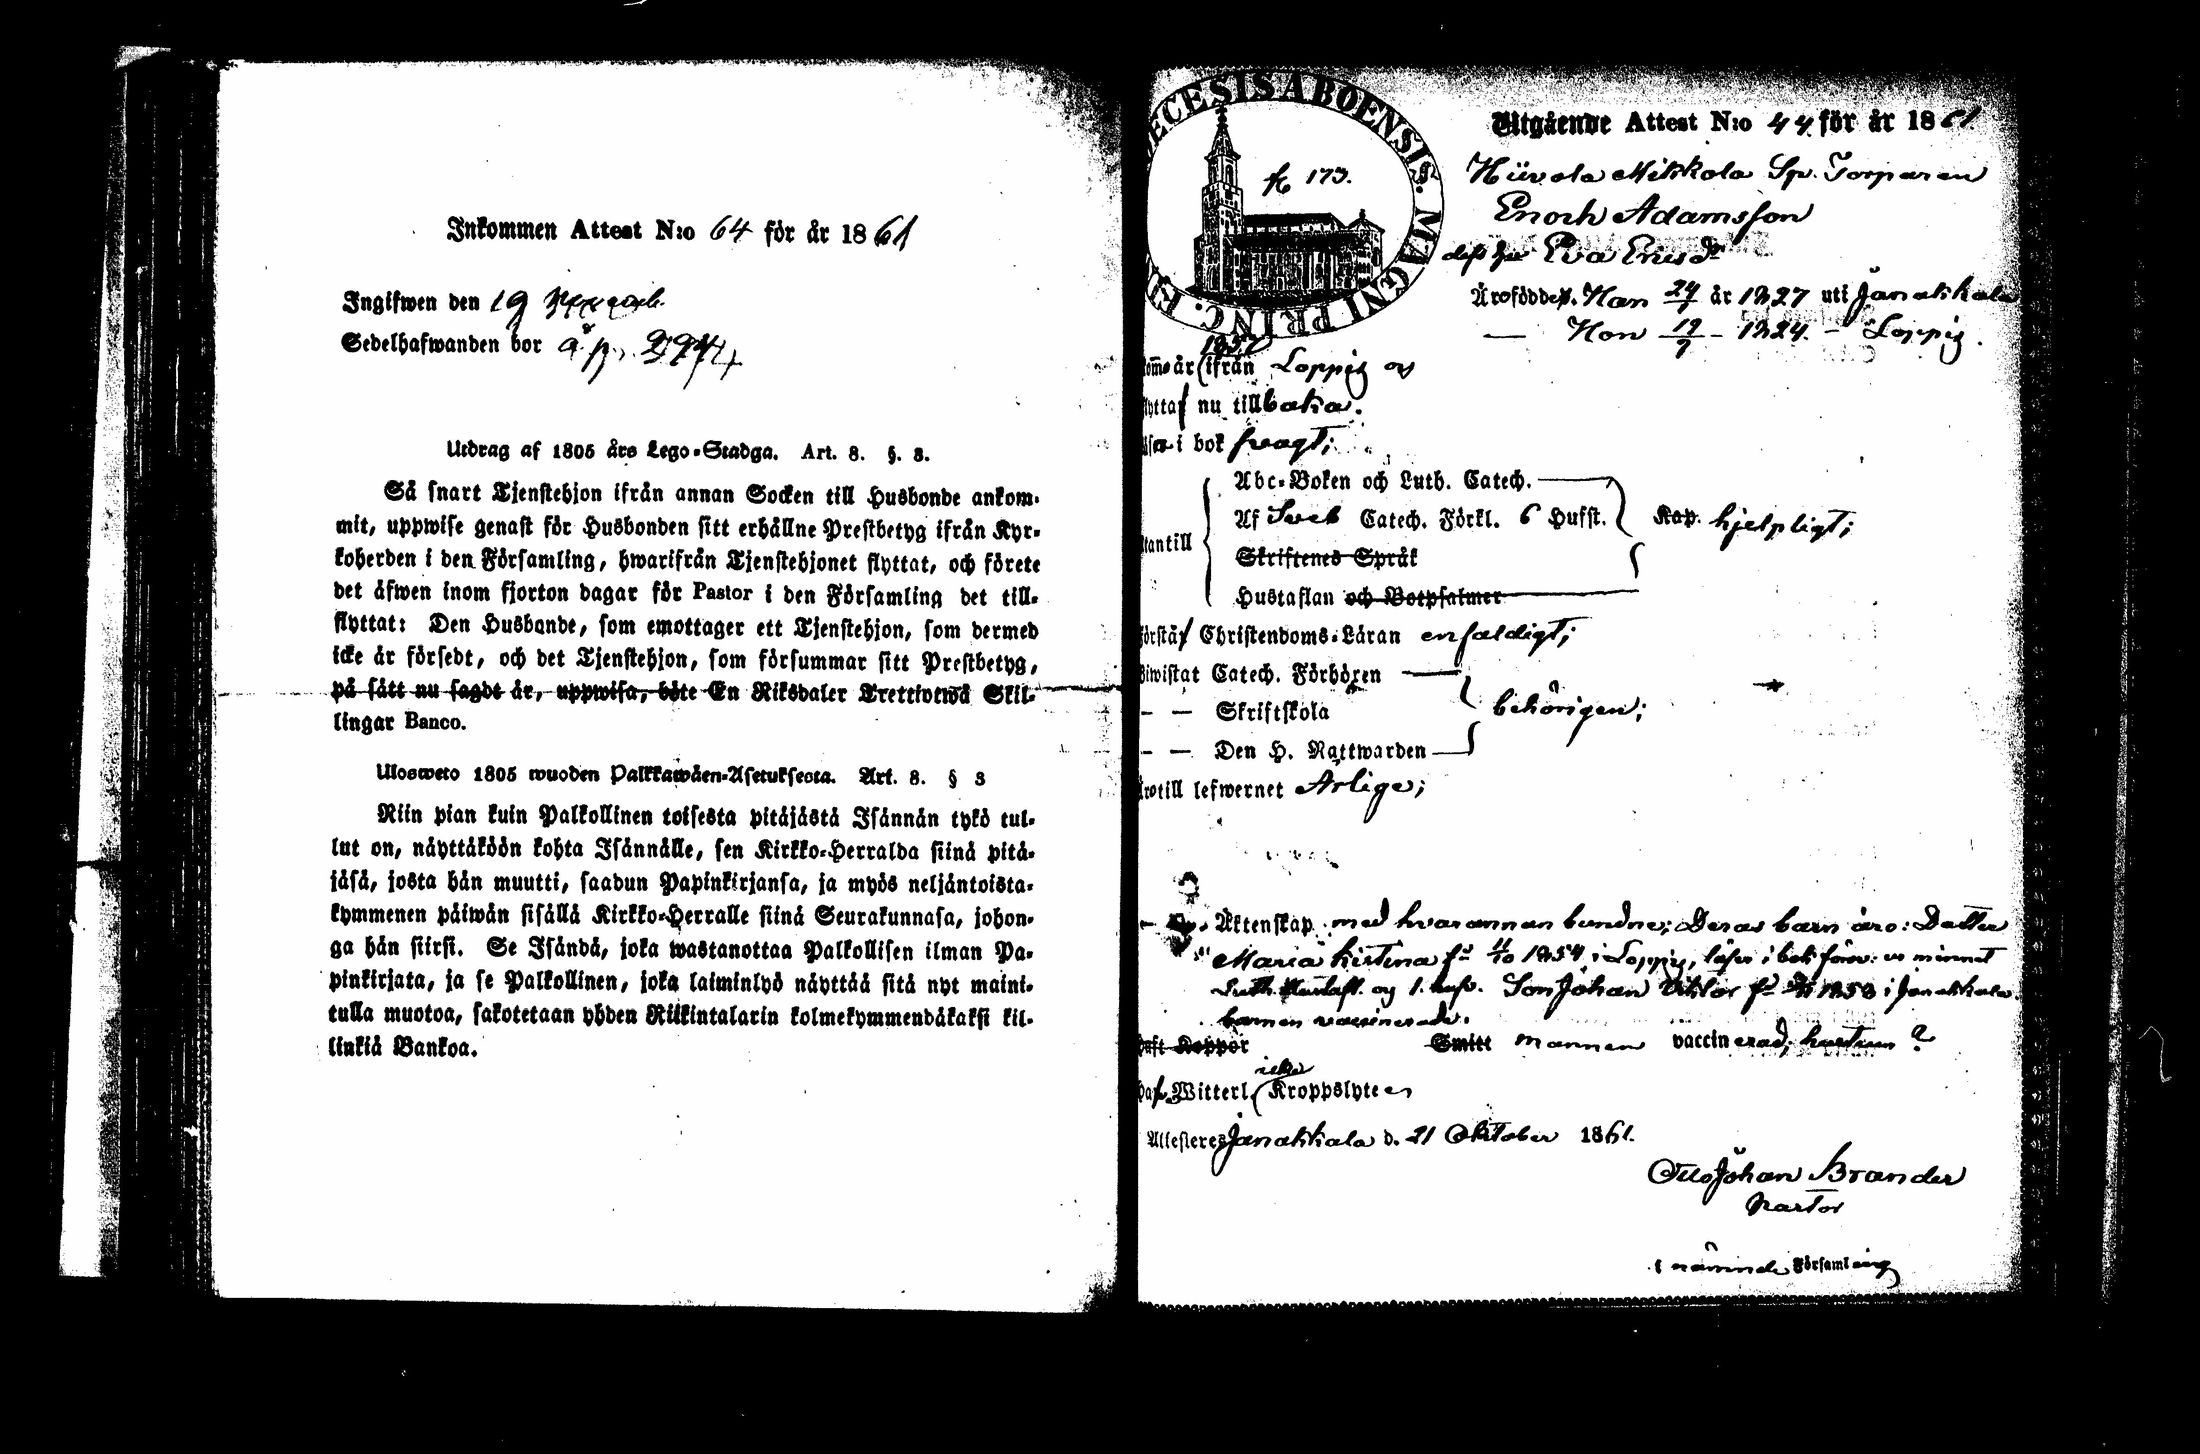 Inkommen Attest N:o 64 för år 1861
Ingifwen den 19
Sedelhafwanden bor å p.
Utdrag af 1805 års Lego-Stadga. Art. 8. §. 3.
Så snart Tjenstehjon ifrån annan Socken till Husbonde ankom-
mit, uppwise genast för Husbonden sitt erhållne Prestbetyg ifrån Kyr-
koherden i den Församling, hwarifrån Tjenstehjonet flyttat, och förete
det äfwen inom fjorton dagar för Pastor i den Församling det till-
flyttat: Den Husbonde, som emottager ett Tjenstehjon, som dermed
icke är försedt, och det Tjenstehjon, som försummar sitt Prestbetyg,
på sätt nu sagdt är, uppwisa, böte En Riksdaler Trettiotwå Skil-
lingar Banco.
Ulosweto 1805 wuoden Palkkawäen-Asetuksesta. Art. 8. § 3
Niin pian kuin Palkollinen toisesta pitäjästä Isännän tykö tul-
lut on, näyttäköön kohta Isännälle, sen Kirkko-Herralda siinä pitä-
jäsä, josta hän muutti, saadun Papinkirjansa, ja myös neljäntoista-
kymmenen päiwän sisällä Kirkko-Herralle siinä Seurakunnasa, johon-
ga hän siirsi. Se Isändä, joka wastanottaa Palkollisen ilman Pa-
pinkirjata, ja se Palkollinen, joka laiminlyö näyttää sitä nyt maini-
tulla muotoa, sakotetaan yhden Riikintalarin kolmekymmendäkaksi kil-
linkiä Bankoa.
ECESIS ABOENSIS. MAGNI PRINC. FI
fo 173.
Utgående Attest N:o 44 för år 1861
Hiivola Mikkola Sp. Torparen
Enoch Adamsson
dess hu Eva Ericsdr
Äro födde. Han 24/7 år 1827 uti Janakkala
— Hon 19/7 – 1824. – Loppis.
1857
är ifrån Loppis og
nu tillbaka.
i bok svagt;
Abc-Boken och Luth. Catech.
Af Sveb Catech. Förkl. 6 Hufst. Kap. hjelpligt;
antill
Skriftenes Språk
Hustaflan och Botpsalmer
Christendoms-Läran enfaldigt;
Biwistat Catech. Förhören
— — Skriftskola behörigen;
— — Den H. Nattwarden
till lefwernet Ärlige;
Äktenskap med hvarannan bundne; Deras barn äro: Dotter
Maria Kristina fd 11/10 1854 i Loppis, läser i bok förs: ur minnet
Luth. Hustafl. og 1. hufs. Son Johan Viktor fd 1858 i Janakkala.
barnen vaccinerade.
Koppor Smitt mannen vaccinerad, hustrun ?
icke
Witterl. Kroppslyten
Attesteres Janakkala d. 21 Oktober 1861.
Otto Johan Brander
Pastor
i nämnde Församling